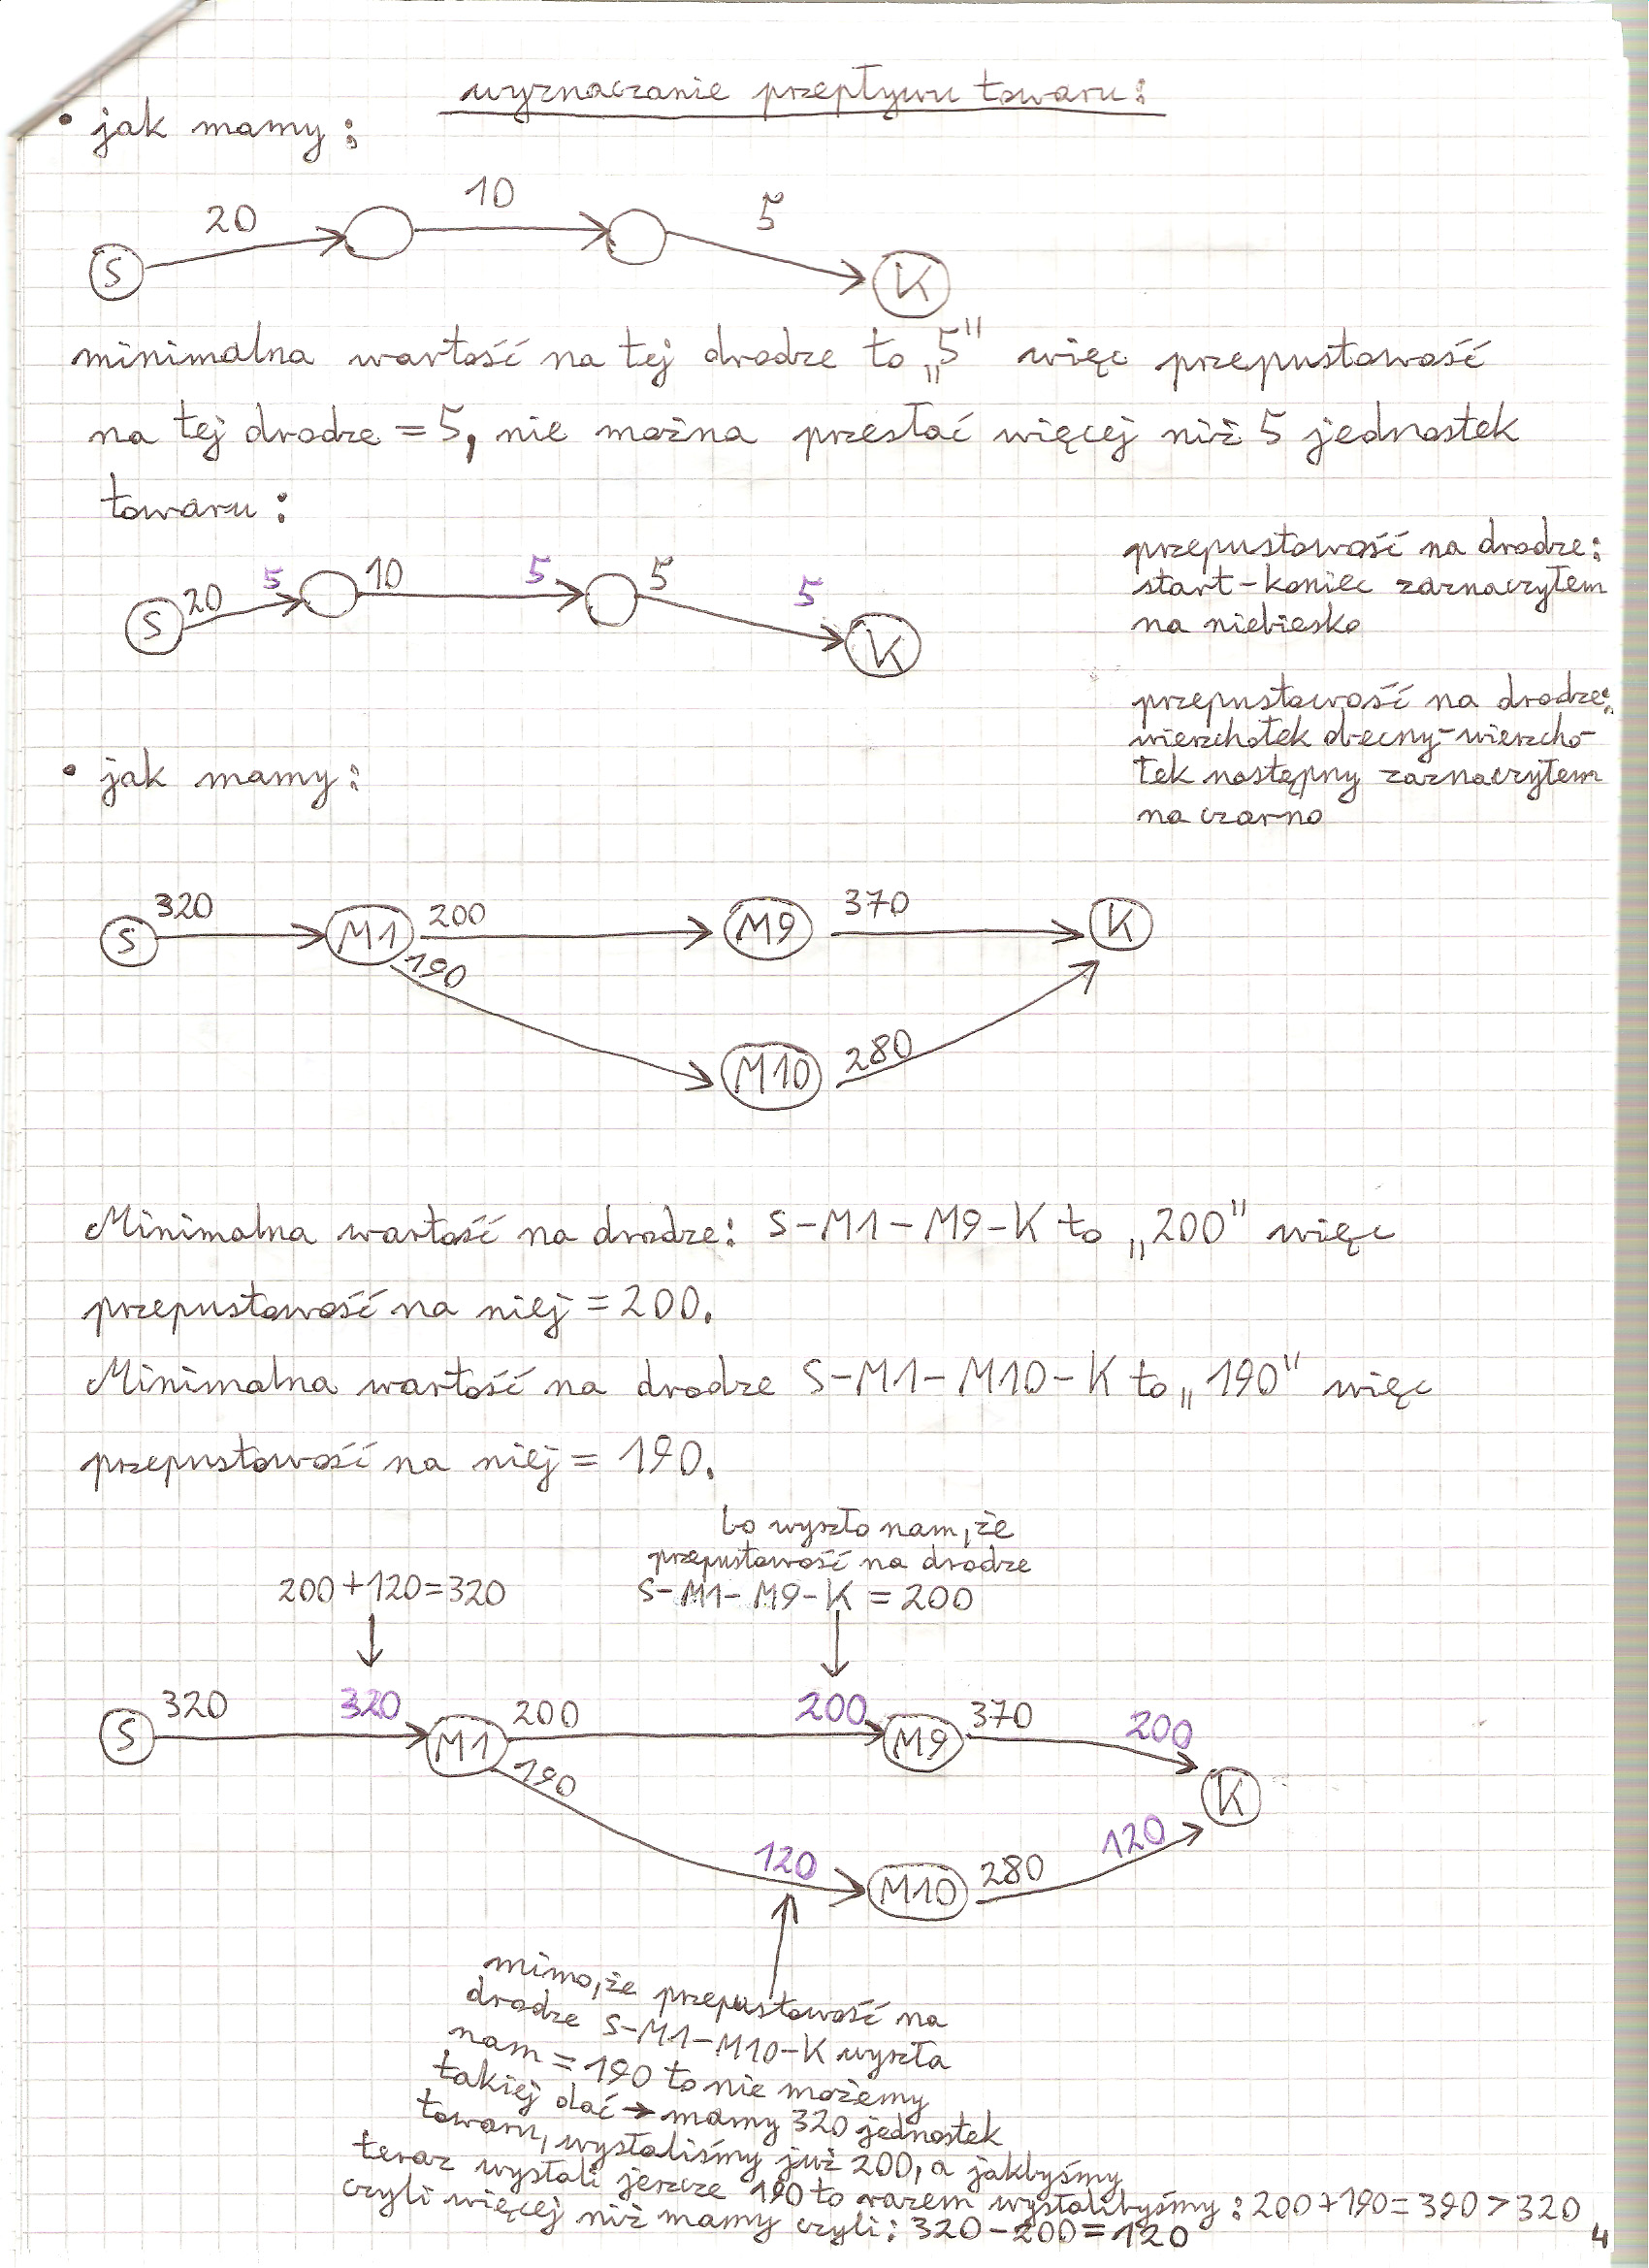 wyznaczanie przepływu towaru:
• jak mamy:
20 10 5
S K
minimalna wartość na tej drodze to „5" więc przepustowość
na tej drodze = 5, nie można przesłać więcej niż 5 jednostek
towaru:
przepustowość na drodze:
start-koniec zaznaczyłem
na niebiesko
S 20 5 10 5 5 5 K
przepustowość na drodze:
wierzchołek obecny-wierzcho-
łek następny zaznaczyłem
na czarno
• jak mamy:
S 320 M1 200 M9 370 K
190
M10 280
Minimalna wartość na drodze: S-M1-M9-K to „200" więc
przepustowość na niej = 200.
Minimalna wartość na drodze S-M1-M10-K to „190" więc
przepustowość na niej = 190.
bo wyszło nam, że
przepustowość na drodze
S-M1-M9-K = 200
200+120=320
S 320 320 M1 200 200 M9 370 200
190
K
120 M10 280 120
mimo, że przepustowość na
drodze S-M1-M10-K wyszła
nam = 190 to nie możemy
takiej dać → mamy 320 jednostek
towaru, wysłaliśmy już 200, a jakbyśmy
teraz wysłali jeszcze 190 to razem wysłalibyśmy: 200+190=390>320
czyli więcej niż mamy czyli: 320-200=120
4